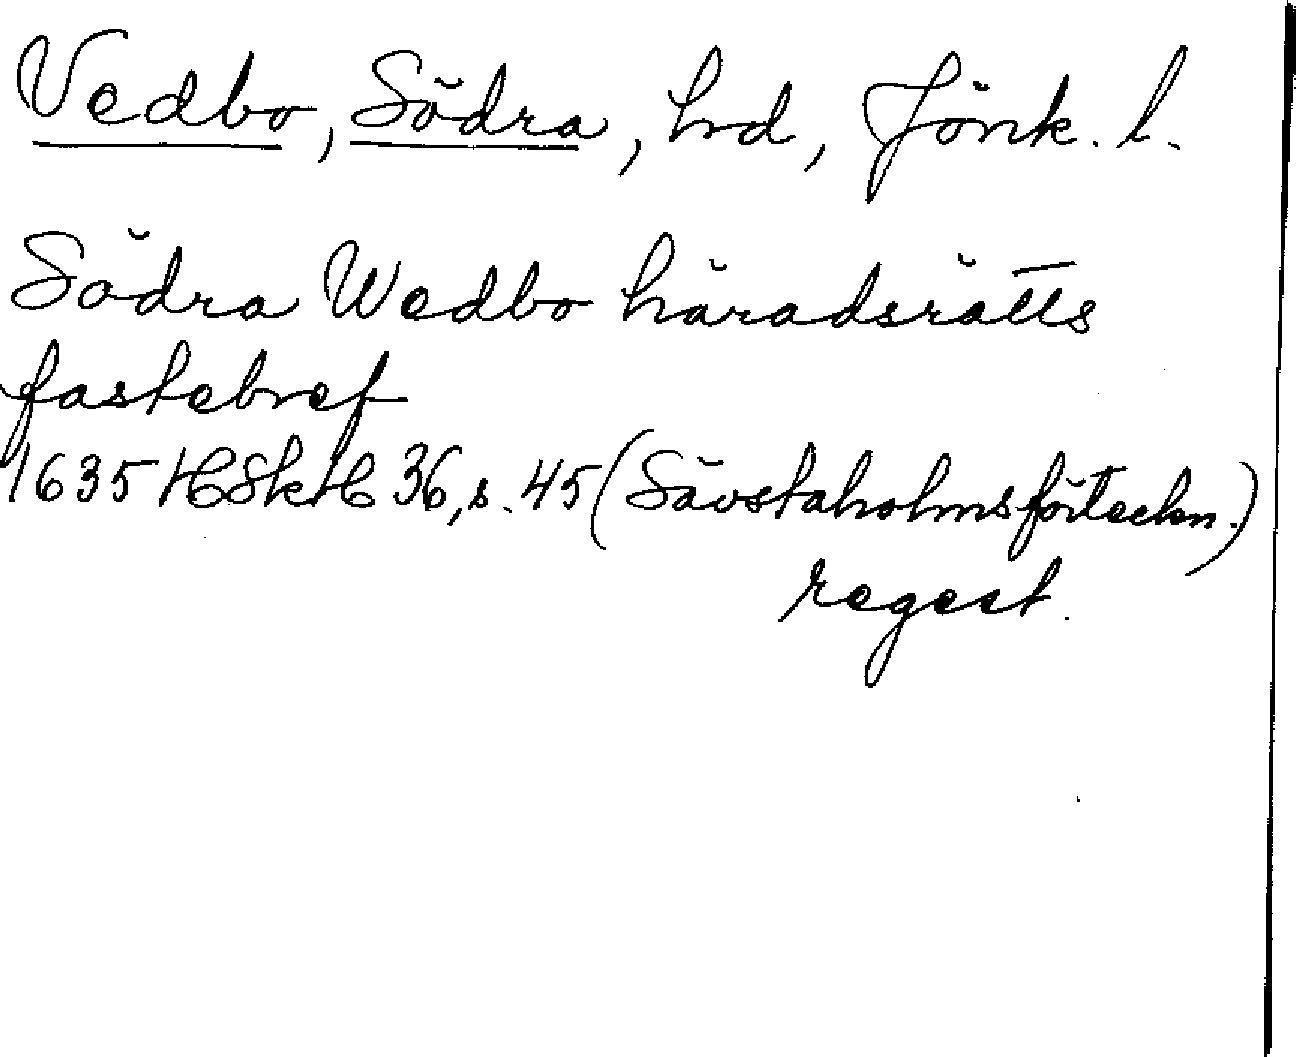 Vedbo, Södra, hd, Jönk. l.
Södra Wedbo häradsrätts
fastebref
1635 HSkH 36, s. 45 (Sävstaholmsförteckn.)
regest.